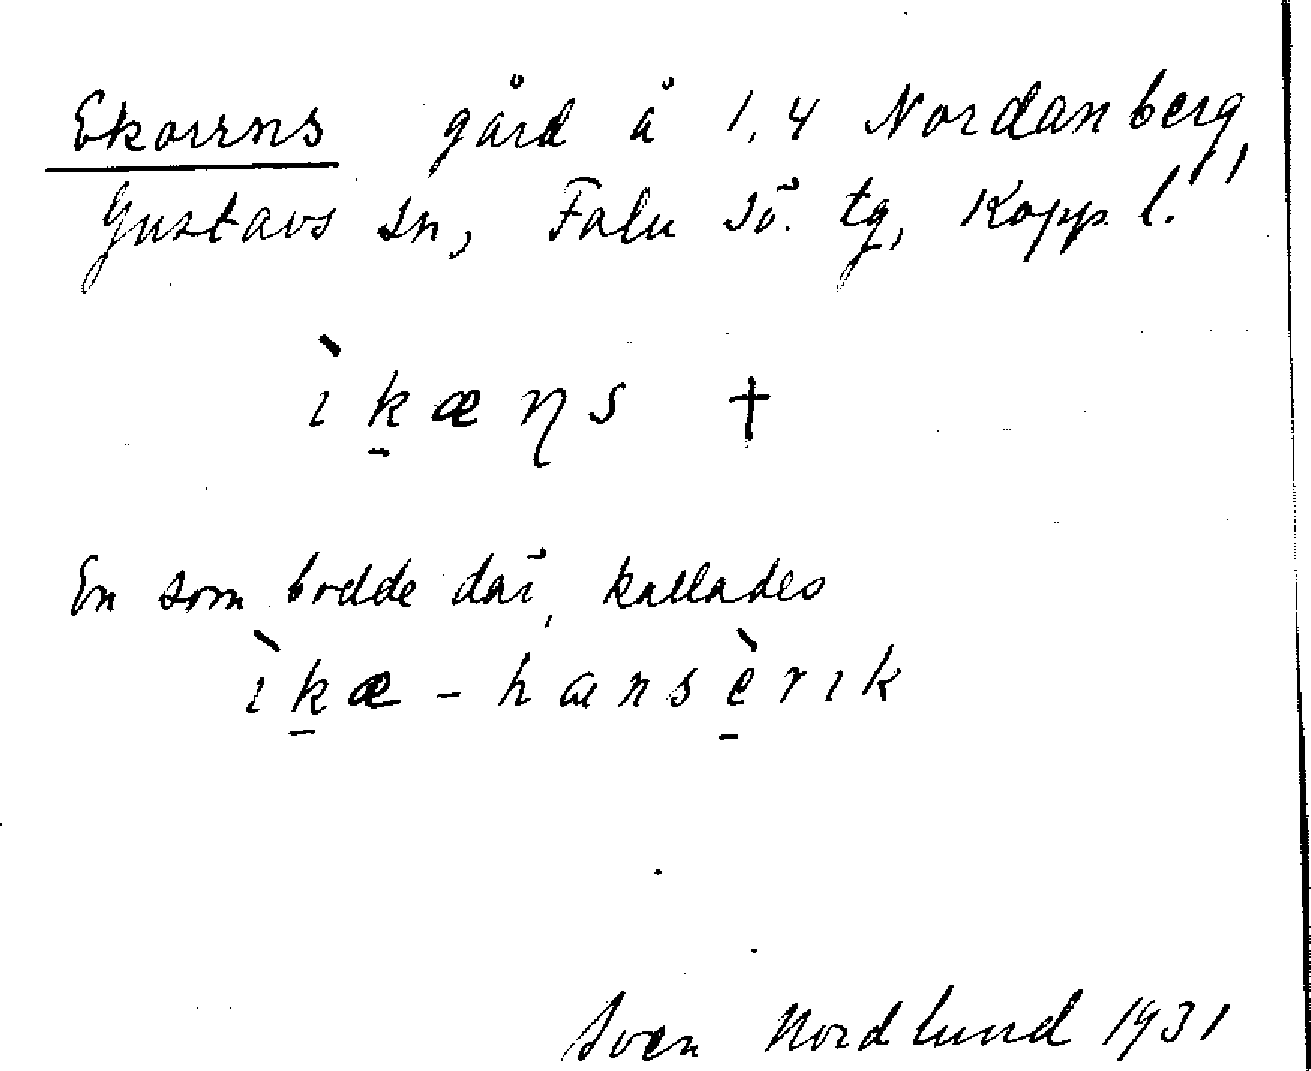 Ekorrns gård å 1,4 Nordanberg,
Gustavs sn, Falu sö. tg, Kopp. l.
ìk̠æɳs †
En som bodde där, kallades
ìk̠æ - hans è̠rık
Sven Nordlund 1931